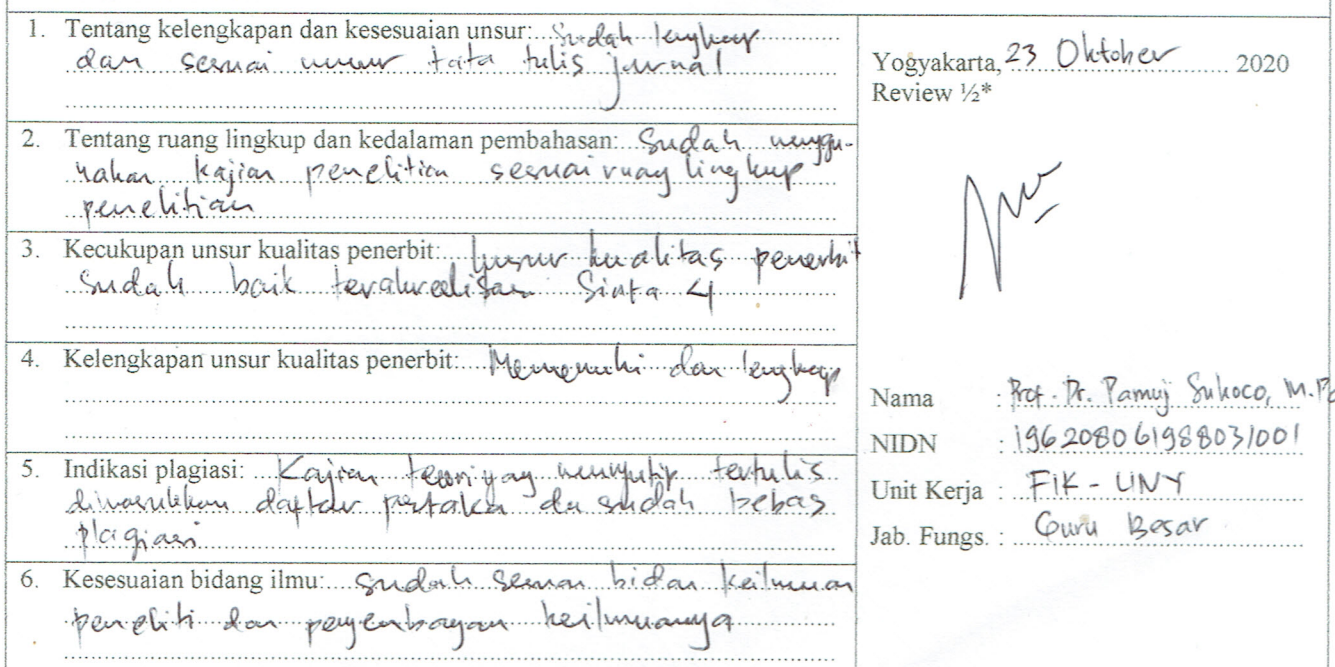 1. Tentang kelengkapan dan kesesuaian unsur: Sudah lengkap
dan sesuai unsur tata tulis jurnal
2. Tentang ruang lingkup dan kedalaman pembahasan: Sudah menggu-
nakan kajian penelitian sesuai ruag lingkup
penelitian
3. Kecukupan unsur kualitas penerbit: Unsur kualitas penerbit
sudah baik terakreditasi Sinta 4
4. Kelengkapan unsur kualitas penerbit: Memenuhi dan lengkap
5. Indikasi plagiasi: Kajian teori yag mengutip tertulis
dimasukkan daftar pustaka dn sudah bebas
plagiasi
6. Kesesuaian bidang ilmu: sudah sesuai bidan keilmuan
peneliti dan pengembangan keilmuannya
Yogyakarta, 23 Oktober 2020
Review ½*
Nama : Prof. Dr. Pamuji Sukoco, M.Pd
NIDN : 196208061988031001
Unit Kerja : FIK - UNY
Jab. Fungs. : Guru Besar